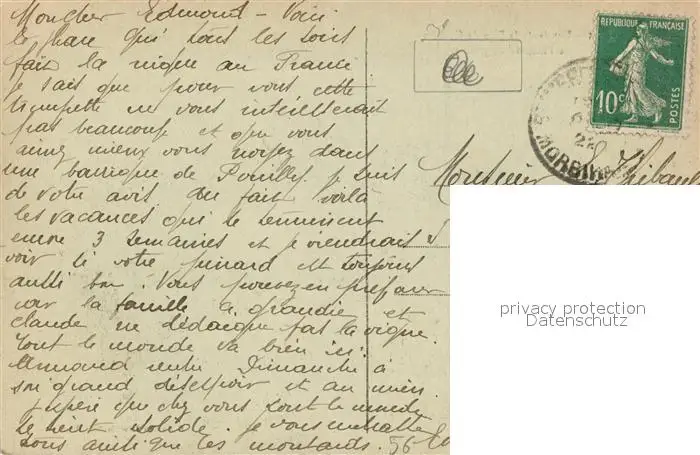 Mon cher Edmont - Voici
le phare qui tous les soirs
fait la nique au France
je sais que pour vous cette
trompette ne vous intéresserait
pas beaucoup et que vous
aimez mieux vous noyez dans
une barrique de Pouilly. je suis
de votre avis. Au fait voilà
les vacances qui se terminent
encore 3 semaines et je viendrais
voir si votre pinard est toujours
aussi bon. Vous pouvez en préparer
car la famille a grandie et
Claude ne dédaigne pas la vigne.
Tout le monde va bien ici.
Armand rentre Dimanche à
son grand désespoir et au mien.
J'espère que chez vous tout le monde
se sent solide. Je vous
tous ainsi que les moutards. 56
REPUBLIQUE FRANÇAISE
10c
POSTES
MORBIHAN
Monsieur Thibault
privacy protection
Datenschutz